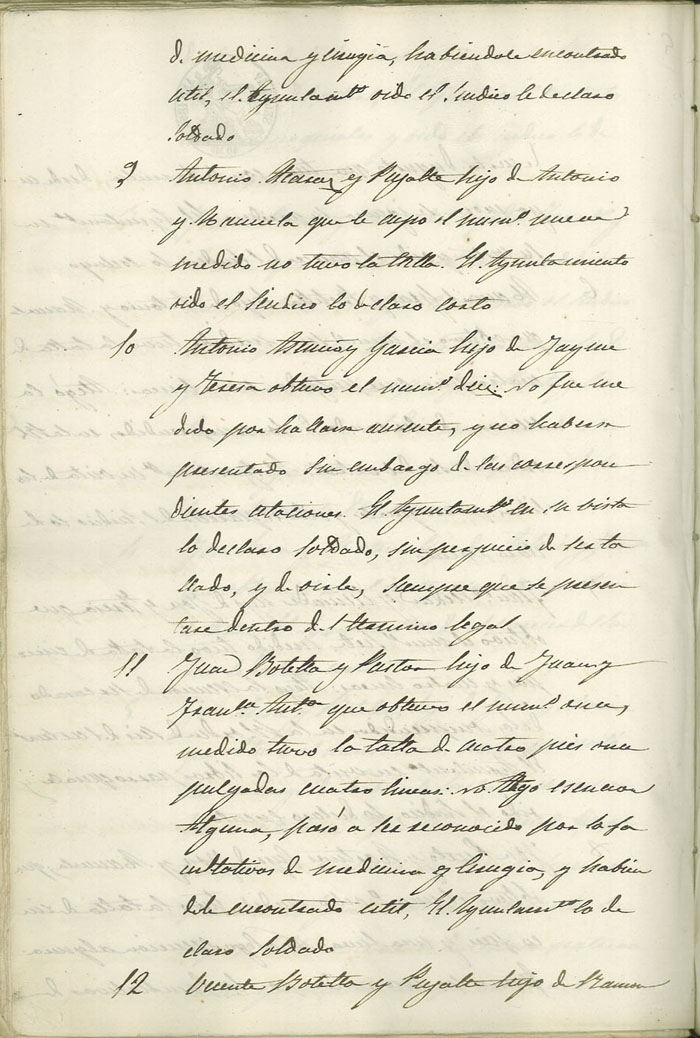 de medicina y cirugia, habiendole encontrado
util, el Ayuntamto oido el Sindico le declaro
Soldado
9 Antonio y Pujalte hijo de Antonio
y Manuela que le cupo el numo nueve
medido no tuvo la talla. El Ayuntamiento
oido el Sindico lo declaro corto
10 Antonio y Garcia hijo de Jayme
y Teresa obtuvo el numo diez: no fue me
dido por hallarse ausente, y no haberse
presentado sin embargo de las correspon
dientes citaciones. El Ayuntamto en su vista
lo declaro Soldado, sin perjuicio de ser ta
llado, y de oirle, siempre que se presen
tase dentro del termino legal
11 Juan Botella y Pastor hijo de Juan y
Franca Anta que obtuvo el numo once,
medido tuvo la talla de cuatro pies once
pulgadas cuatro lineas: no alego esencion
alguna, pasó a ser reconocido por los fa
cultativos de medicina y cirugia, y habien
dole encontrado util, El Ayuntamto lo de
claro Soldado
12 Vicente Botella y Pujalte hijo de Ramon